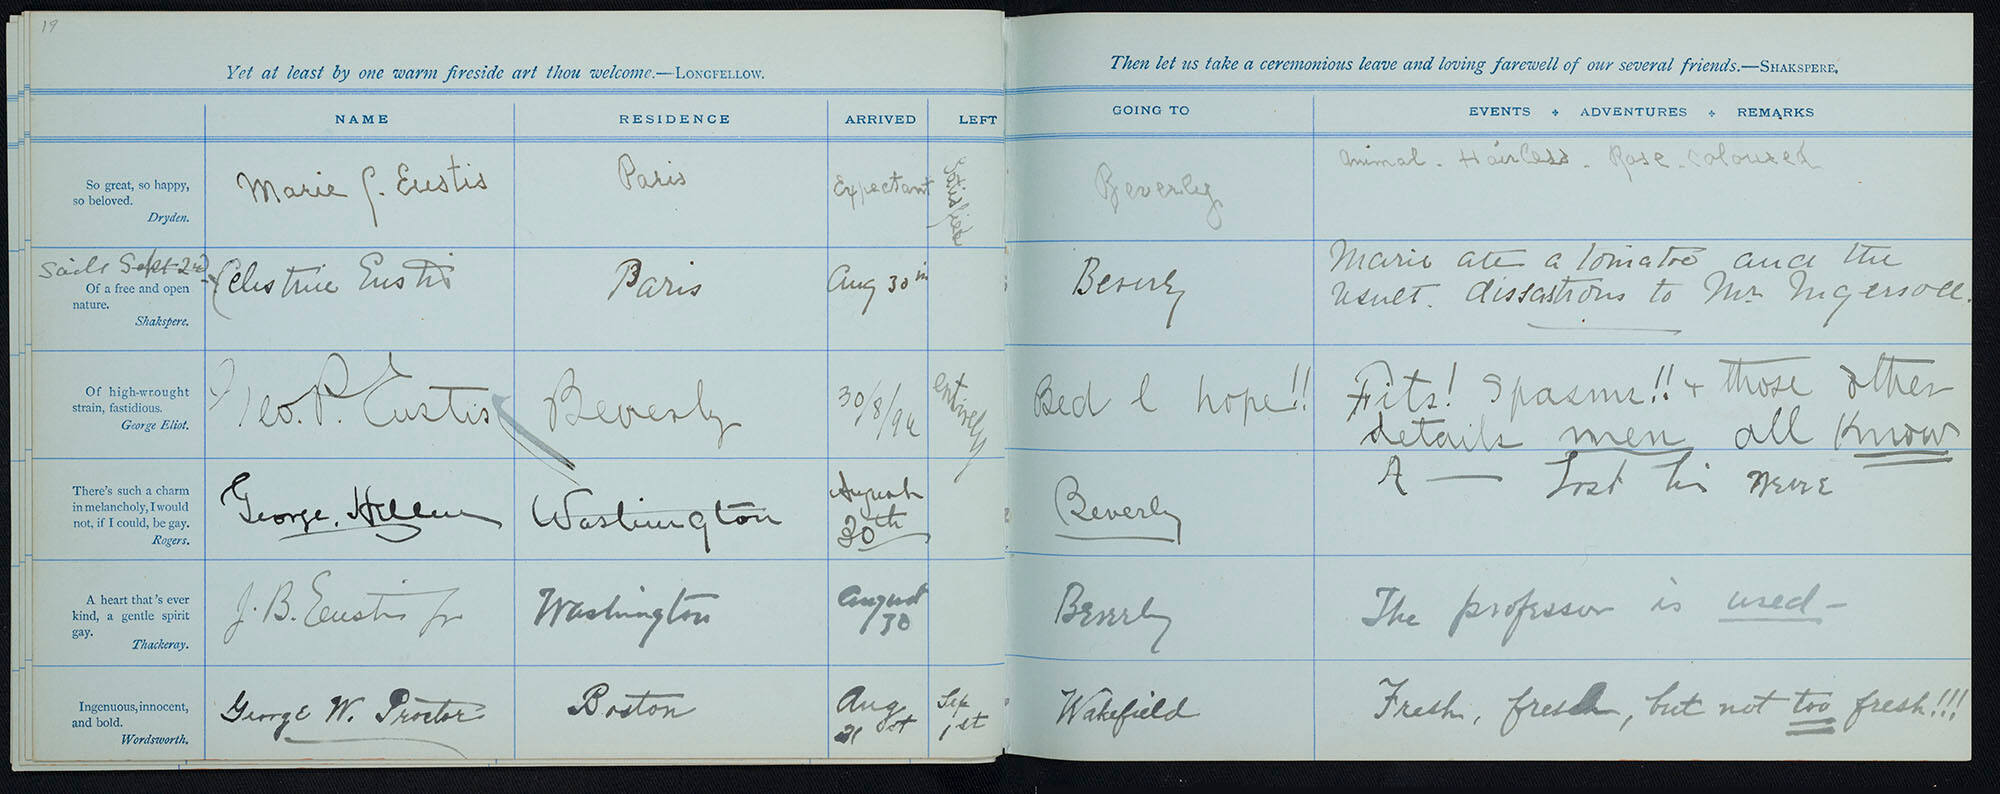 19
Yet at least by one warm fireside art thou welcome.—LONGFELLOW.
NAME RESIDENCE ARRIVED LEFT
So great, so happy,
so beloved.
Dryden.
Marie G. Eustis Paris Expectant Satisfied
Sails Sept 2nd
Of a free and open
nature.
Shakspere.
Celestine Eustis Paris Aug 30th
Of high-wrought
strain, fastidious.
George Eliot.
Geo. P. Eustis Beverly 30/8/94 entirely
There's such a charm
in melancholy, I would
not, if I could, be gay.
Rogers.
George. Hellen Washington August
30th
A heart that's ever
kind, a gentle spirit
gay.
Thackeray.
J. B. Eustis Jr Washington August
30
Ingenuous, innocent,
and bold.
Wordsworth.
George W. Proctor Boston Aug
31st
Sep
1st
Then let us take a ceremonious leave and loving farewell of our several friends.—SHAKSPERE.
GOING TO EVENTS ADVENTURES REMARKS
Beverly Animal. Hairless. Rose-coloured
Beverly Marie ate a tomatoe and the
result. dissastrous to Mr. Ingersoll.
Bed I hope!! Fits! Spasms!! + those other
details men all know
Beverly A — lost his nerve
Beverly The professor is used —
Wakefield Fresh, fresh, but not too fresh!!!